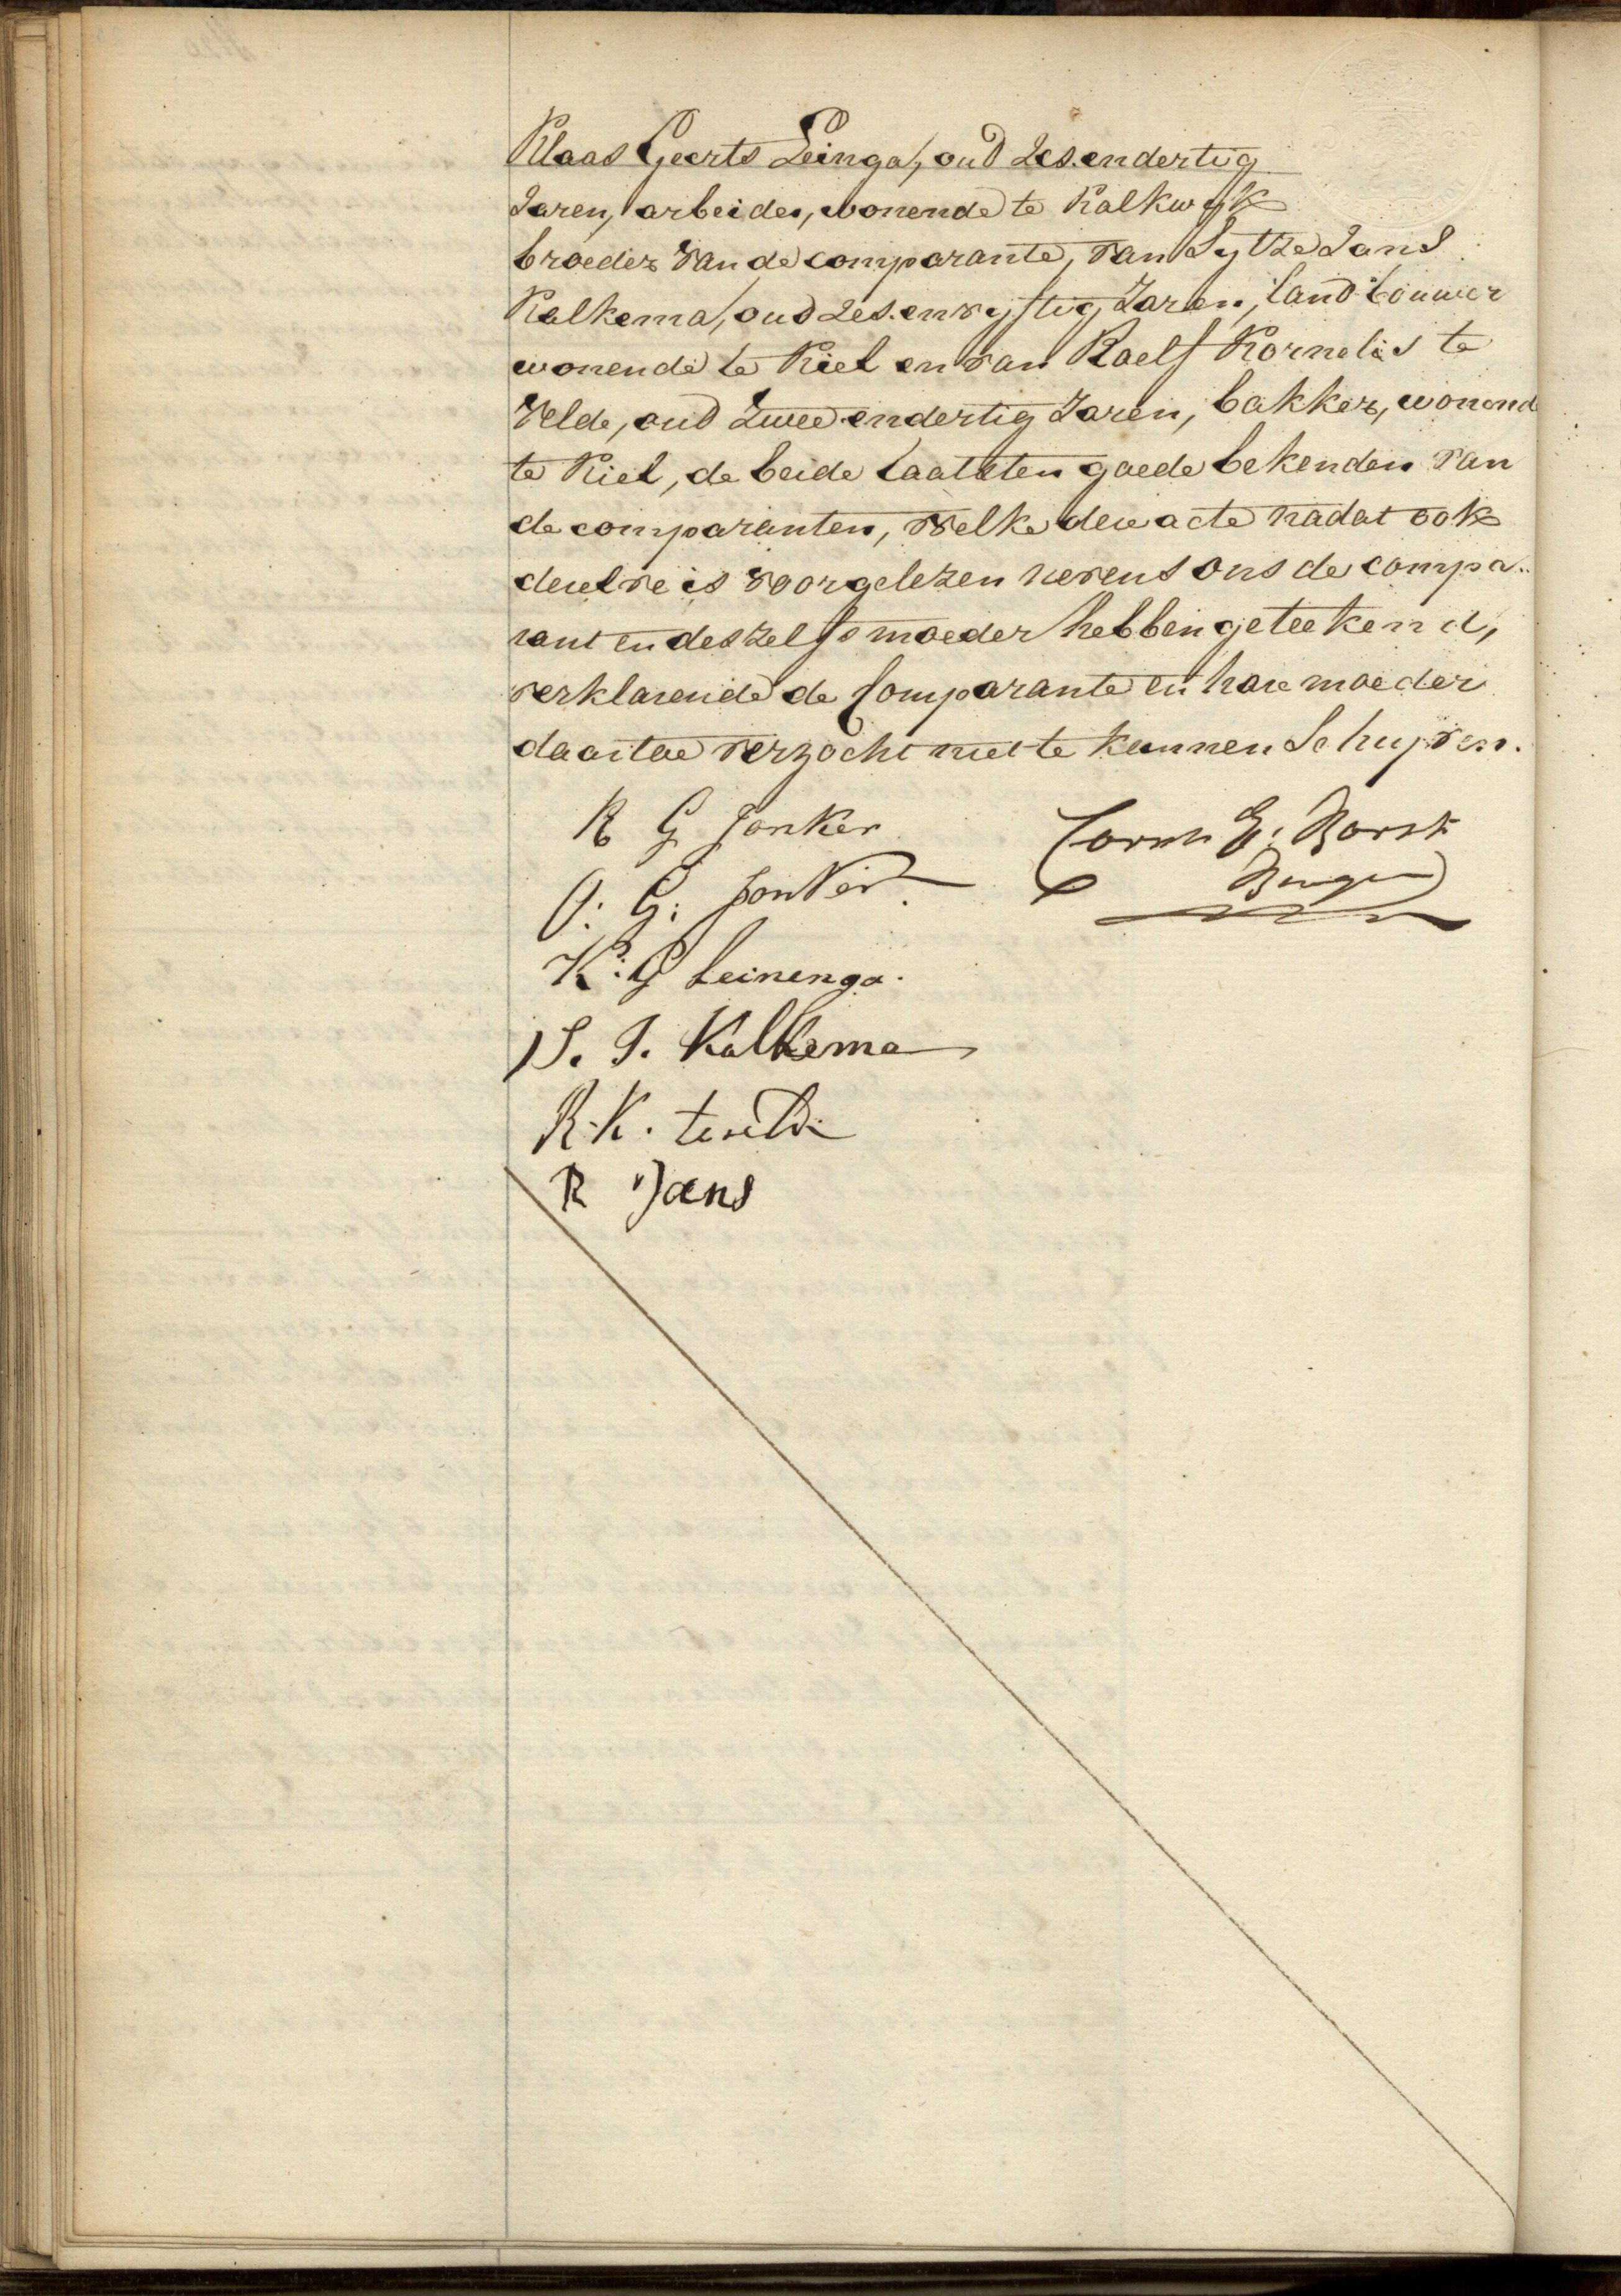 Klaas Geerts Leinga, oud zes.endertig
Jaren, arbeider, wonende te Kalkwijk
broeder van de comparante, van Sytze Jans
Kalkema, oud zes.envyftig Jaren, landbouwer
wonende te Kiel en van Roelf Kornelis te
Velde, oud twee endertig Jaren, bakker, wonend
te Kiel, de beide laatsten goede bekenden van
de comparanten, welke deze acte nadat ook
dezelve is voorgelezen nevens ons de compa..
rant en deszelfs moeder hebben geteekend,
verklarende de Comparante en hare moeder
daartoe verzocht niet te kunnen Schryven.
R G Jonker
Corns E: Borst
Burgm
O: G: Jonker.
K: G Leinenga.
S. J. Kalkema
R. K. te velde
R Jans